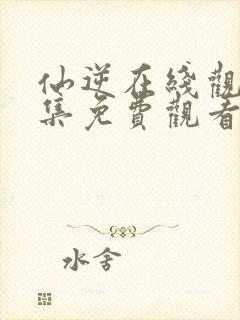 仙逆在綫觀
集免費觀看
水舍